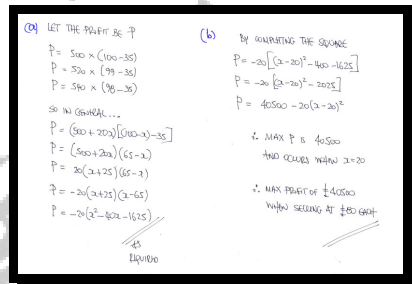 (a) LET THE PROFIT BE P
P = 500 × (100-35)
P = 520 × (99-35)
P = 540 × (98-35)
SO IN GENERAL...
P = (500 + 20x)[(100-x)-35]
P = (500+20x)(65-x)
P = 20(x+25)(65-x)
P = -20(x+25)(x-65)
P = -20(x²-40x-1625)
AS
REQUIRED
(b) BY COMPLETING THE SQUARE
P = -20[(x-20)²-400-1625]
P = -20[(x-20)²-2025]
P = 40500 - 20(x-20)²
∴ MAX P IS 40500
AND OCCURS WHEN x=20
∴ MAX PROFIT OF £40500
WHEN SELLING AT £80 EACH